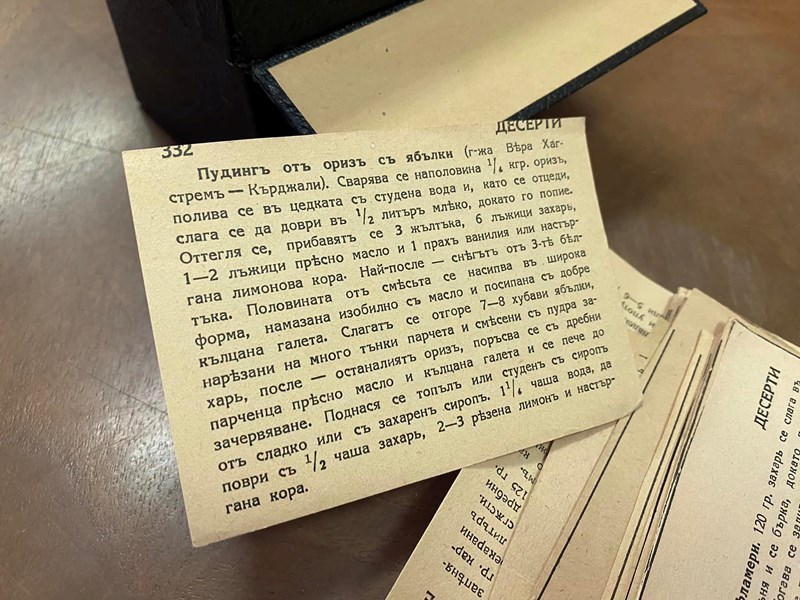 332
ДЕСЕРТИ
Пудингъ отъ оризъ съ ябълки (г-жа Вѣра Хаг-
стремъ — Кърджали). Сварява се наполовина 1/4 кгр. оризъ,
полива се въ цедката съ студена вода и, като се отцеди,
слага се да доври въ 1/2 литъръ млѣко, докато го попие.
Оттегля се, прибавятъ се 3 жълтъка, 6 лъжици захарь,
1—2 лъжици прѣсно масло и 1 прахъ ванилия или настър-
гана лимонова кора. Най-после — снѣгътъ отъ 3-тѣ бѣл-
тъка. Половината отъ смѣсьта се насипва въ широка
форма, намазана изобилно съ масло и посипана съ добре
кълцана галета. Слагатъ се отгоре 7—8 хубави ябълки,
нарѣзани на много тънки парчета и смѣсени съ пудра за-
харь, после — останалиятъ оризъ, поръсва се съ дребни
парченца прѣсно масло и кълцана галета и се пече до
зачервяване. Поднася се топълъ или студенъ съ сиропъ
отъ сладко или съ захаренъ сиропъ. 1 1/4 чаша вода, да
поври съ 1/2 чаша захарь, 2—3 рѣзена лимонъ и настър-
гана кора.
ДЕСЕРТИ
120 гр. захарь се слага въ
и се бърка, докато
125 гр.
дребни
сгѫсти.
литъръ
гр. кар-